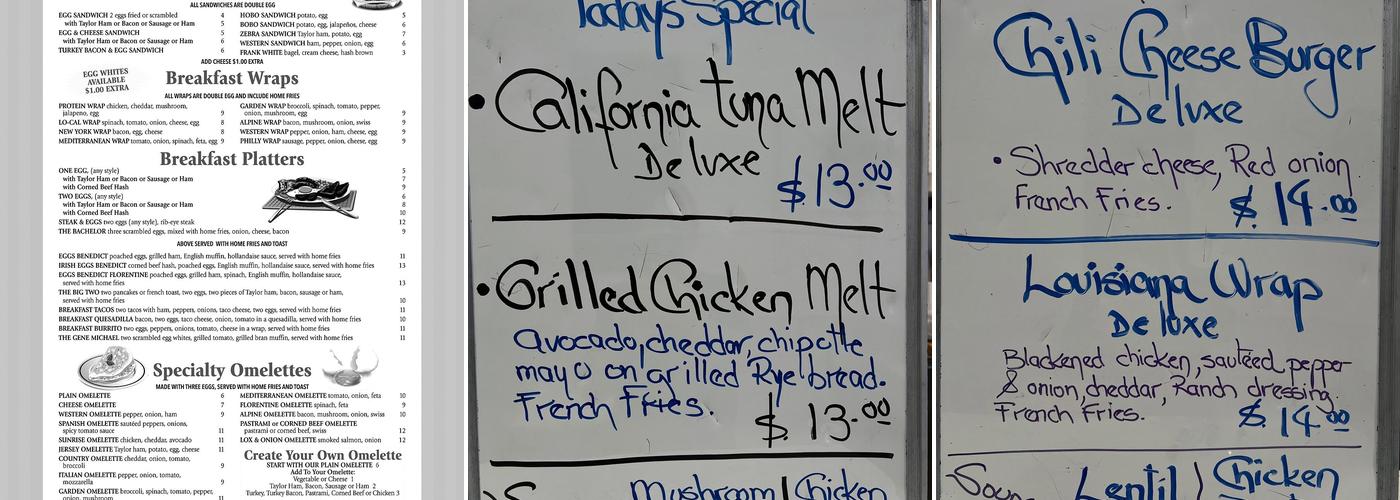 ALL SANDWICHES ARE DOUBLE EGG
EGG SANDWICH 2 eggs fried or scrambled 4
with Taylor Ham or Bacon or Sausage or Ham 5
EGG & CHEESE SANDWICH 5
with Taylor Ham or Bacon or Sausage or Ham 6
TURKEY BACON & EGG SANDWICH 6
HOBO SANDWICH potato, egg 5
BOBO SANDWICH potato, egg, jalapeños, cheese 6
ZEBRA SANDWICH Taylor ham, potato, egg 7
WESTERN SANDWICH ham, pepper, onion, egg 6
FRANK WHITE bagel, cream cheese, hash brown 3
ADD CHEESE $1.00 EXTRA
EGG WHITES
AVAILABLE
$1.00 EXTRA
Breakfast Wraps
ALL WRAPS ARE DOUBLE EGG AND INCLUDE HOME FRIES
PROTEIN WRAP chicken, cheddar, mushroom,
jalapeno, egg 9
LO-CAL WRAP spinach, tomato, onion, cheese, egg 8
NEW YORK WRAP bacon, egg, cheese 8
MEDITERRANEAN WRAP tomato, onion, spinach, feta, egg 9
GARDEN WRAP broccoli, spinach, tomato, pepper,
onion, mushroom, egg 9
ALPINE WRAP bacon, mushroom, onion, swiss 9
WESTERN WRAP pepper, onion, ham, cheese, egg 9
PHILLY WRAP sausage, pepper, onion, cheese, egg 9
Breakfast Platters
ONE EGG, (any style) 5
with Taylor Ham or Bacon or Sausage or Ham 7
with Corned Beef Hash 9
TWO EGGS, (any style) 6
with Taylor Ham or Bacon or Sausage or Ham 8
with Corned Beef Hash 10
STEAK & EGGS two eggs (any style), rib-eye steak 12
THE BACHELOR three scrambled eggs, mixed with home fries, onion, cheese, bacon 9
ABOVE SERVED WITH HOME FRIES AND TOAST
EGGS BENEDICT poached eggs, grilled ham, English muffin, hollandaise sauce, served with home fries 11
IRISH EGGS BENEDICT corned beef hash, poached eggs, English muffin, hollandaise sauce, served with home fries 13
EGGS BENEDICT FLORENTINE poached eggs, grilled ham, spinach, English muffin, hollandaise sauce,
served with home fries 13
THE BIG TWO two pancakes or french toast, two eggs, two pieces of Taylor ham, bacon, sausage or ham,
served with home fries 10
BREAKFAST TACOS two tacos with ham, peppers, onions, taco cheese, two eggs, served with home fries 11
BREAKFAST QUESADILLA bacon, two eggs, taco cheese, onion, tomato in a quesadilla, served with home fries 10
BREAKFAST BURRITO two eggs, peppers, onions, tomato, cheese in a wrap, served with home fries 11
THE GENE MICHAEL two scrambled egg whites, grilled tomato, grilled bran muffin, served with home fries 11
Specialty Omelettes
MADE WITH THREE EGGS, SERVED WITH HOME FRIES AND TOAST
PLAIN OMELETTE 6
CHEESE OMELETTE 7
WESTERN OMELETTE pepper, onion, ham 9
SPANISH OMELETTE sautéed peppers, onions,
spicy tomato sauce 11
SUNRISE OMELETTE chicken, cheddar, avocado 11
JERSEY OMELETTE Taylor ham, potato, egg, cheese 11
COUNTRY OMELETTE cheddar, onion, tomato,
broccoli 9
ITALIAN OMELETTE pepper, onion, tomato,
mozzarella 9
GARDEN OMELETTE broccoli, spinach, tomato, pepper,
onion, mushroom 11
MEDITERRANEAN OMELETTE tomato, onion, feta 10
FLORENTINE OMELETTE spinach, feta 9
ALPINE OMELETTE bacon, mushroom, onion, swiss 10
PASTRAMI or CORNED BEEF OMELETTE
pastrami or corned beef, swiss 12
LOX & ONION OMELETTE smoked salmon, onion 12
Create Your Own Omelette
START WITH OUR PLAIN OMELETTE 6
Add To Your Omelette:
Vegetable or Cheese 1
Taylor Ham, Bacon, Sausage or Ham 2
Turkey, Turkey Bacon, Pastrami, Corned Beef or Chicken 3
Todays Special
• California tuna Melt
Deluxe $13.00
• Grilled Chicken Melt
Avocado, cheddar, chipotle
mayo on grilled Rye bread.
French Fries. $13.00
Mushroom / Chicken
Chili Cheese Burger
Deluxe
• Shredder cheese, Red onion
French Fries. $14.00
Louisiana Wrap
Deluxe
Blackened chicken, sautéed pepper
& onion, cheddar, Ranch dressing.
French Fries. $14.00
Soup Lentil / Chicken